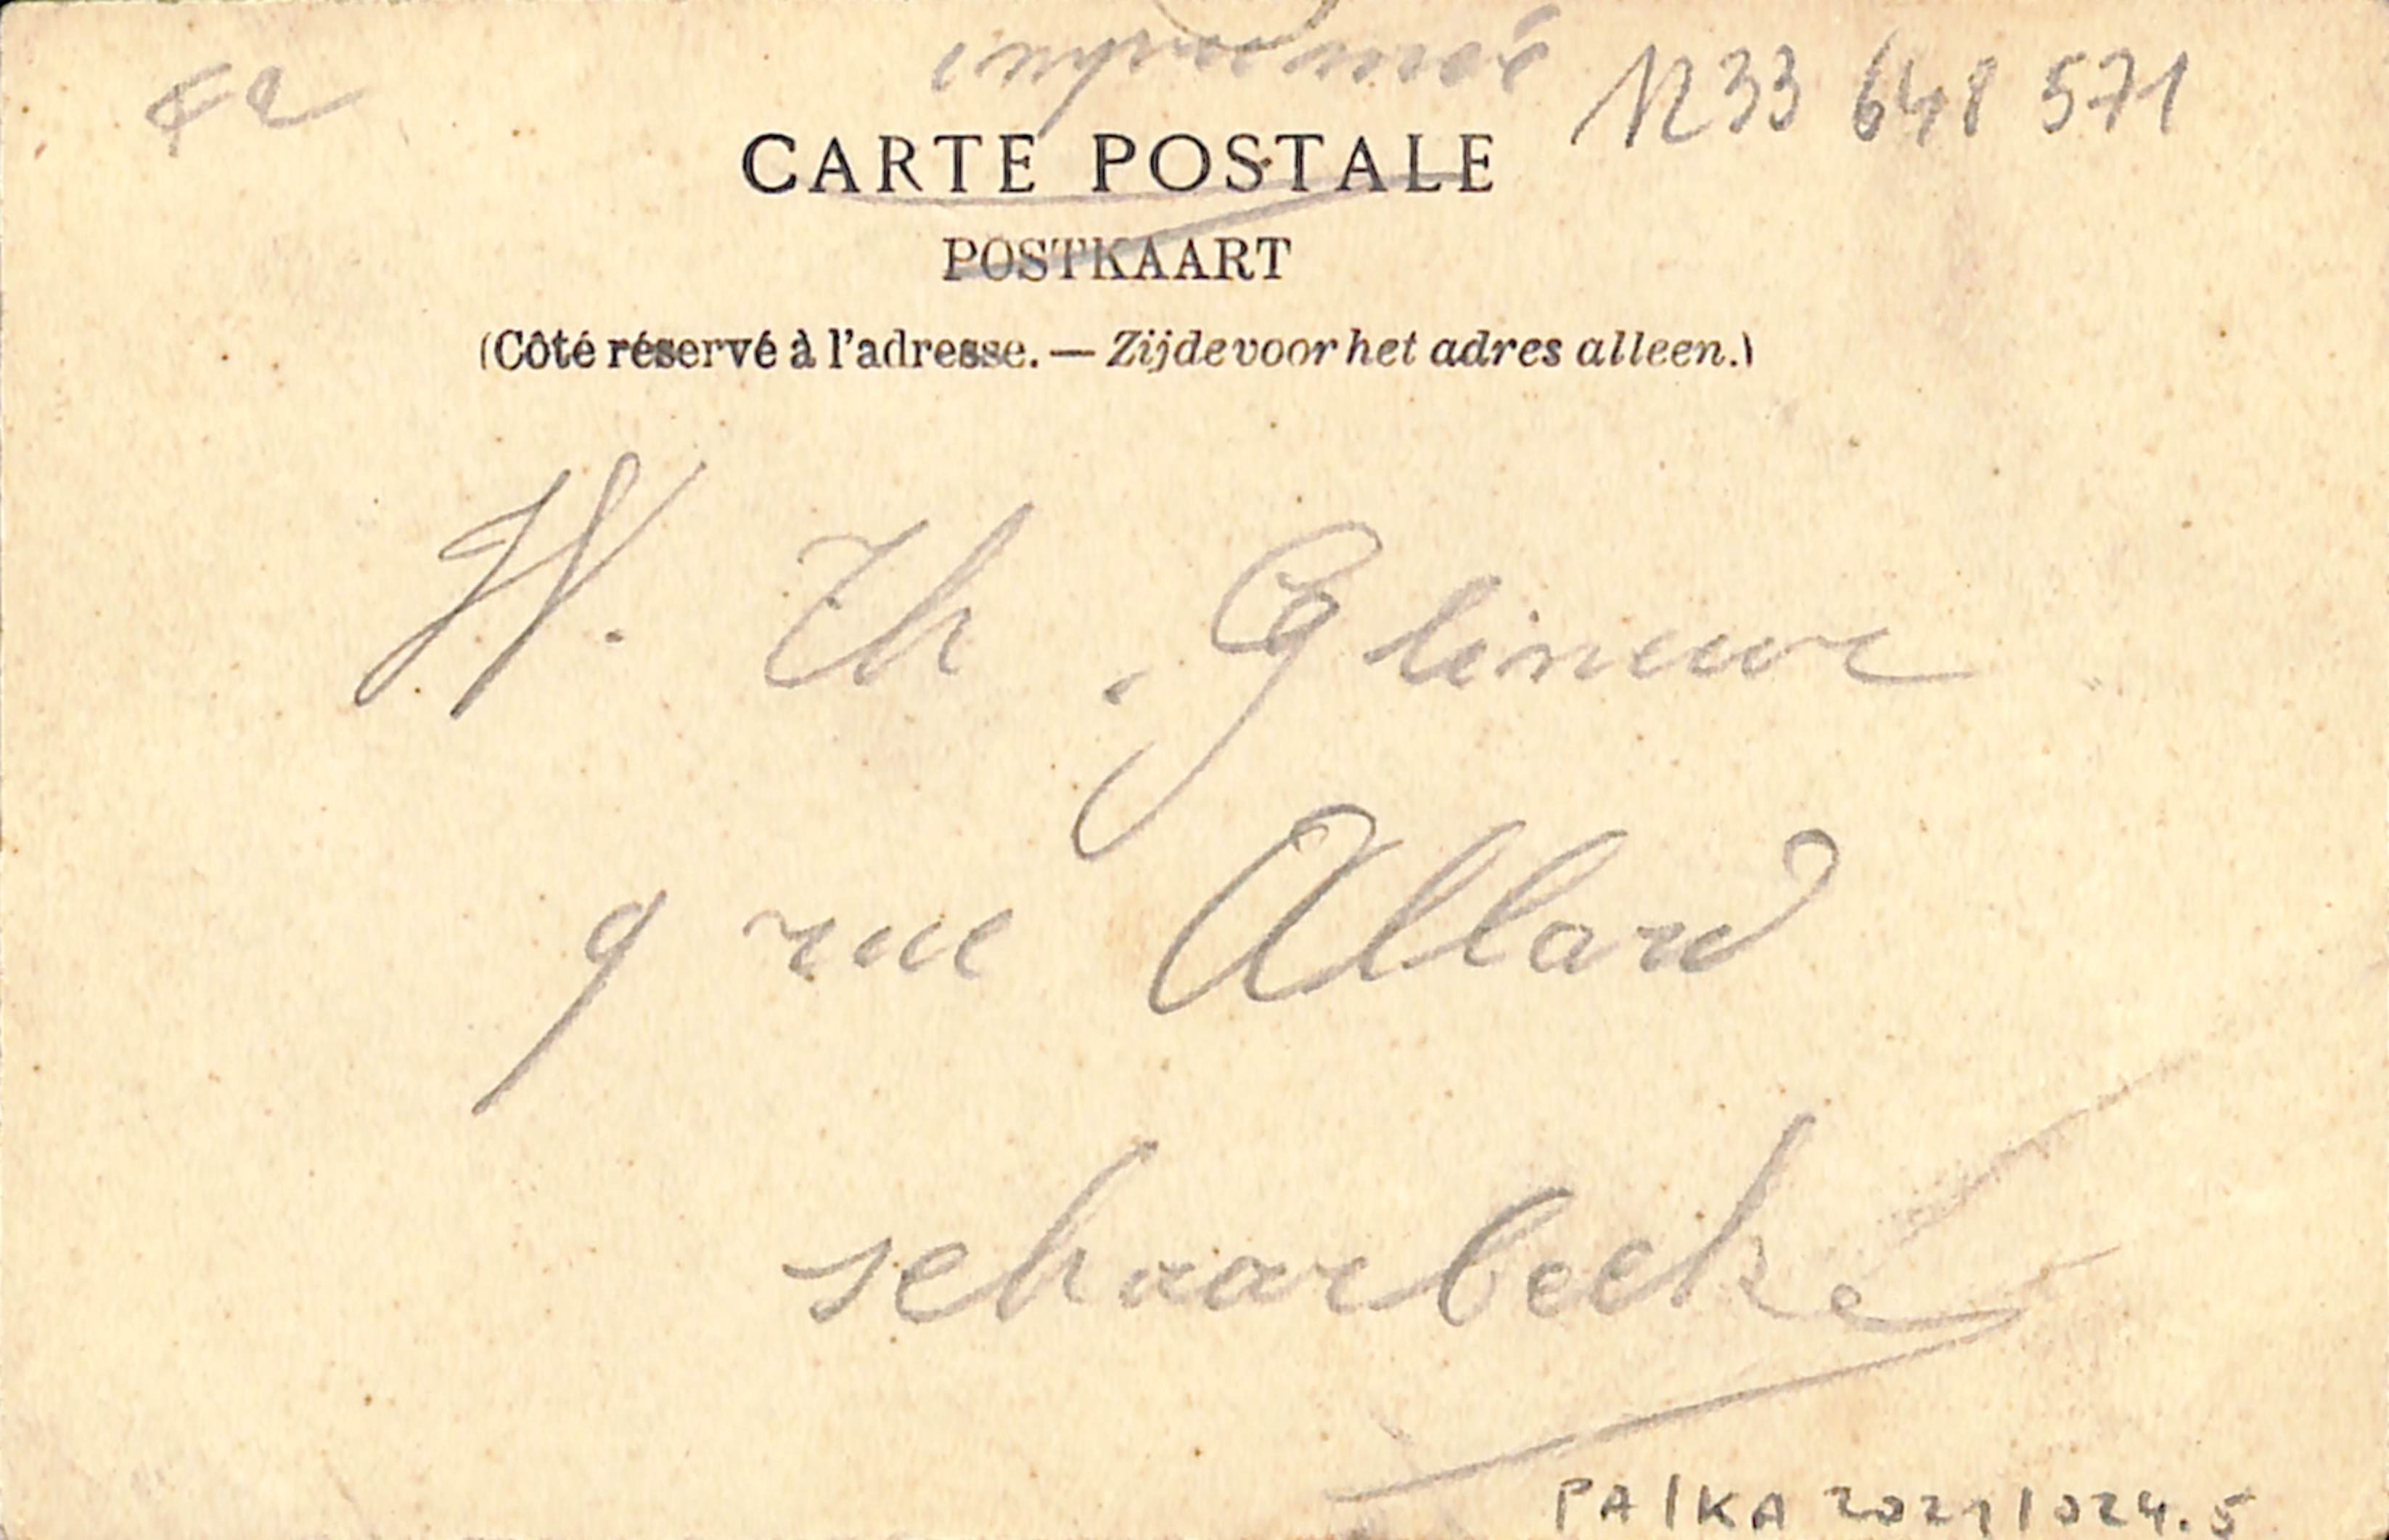 imprimé
1233 648 571
CARTE POSTALE
POSTKAART
(Côté réservé à l'adresse. — Zijde voor het adres alleen.)
Th. Glineur
9 rue Allard
schaarbeek
PA/KA 2021/024.5